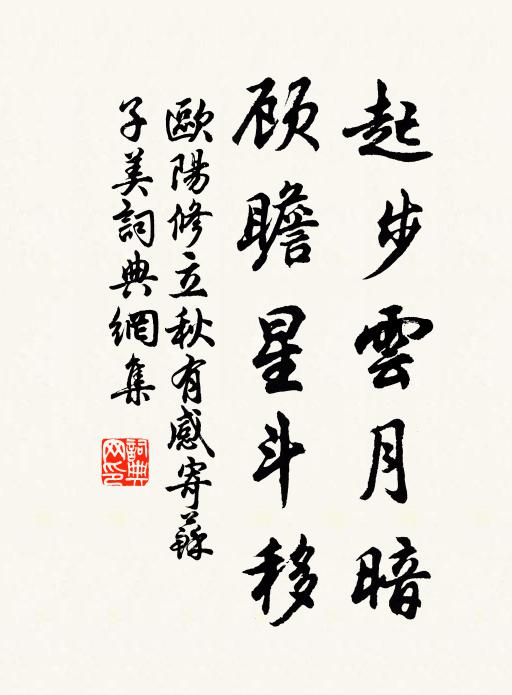 起步雲月暗
顾瞻星斗移
歐陽修立秋有感寄蘇
子美詞典網集
詞典
网印